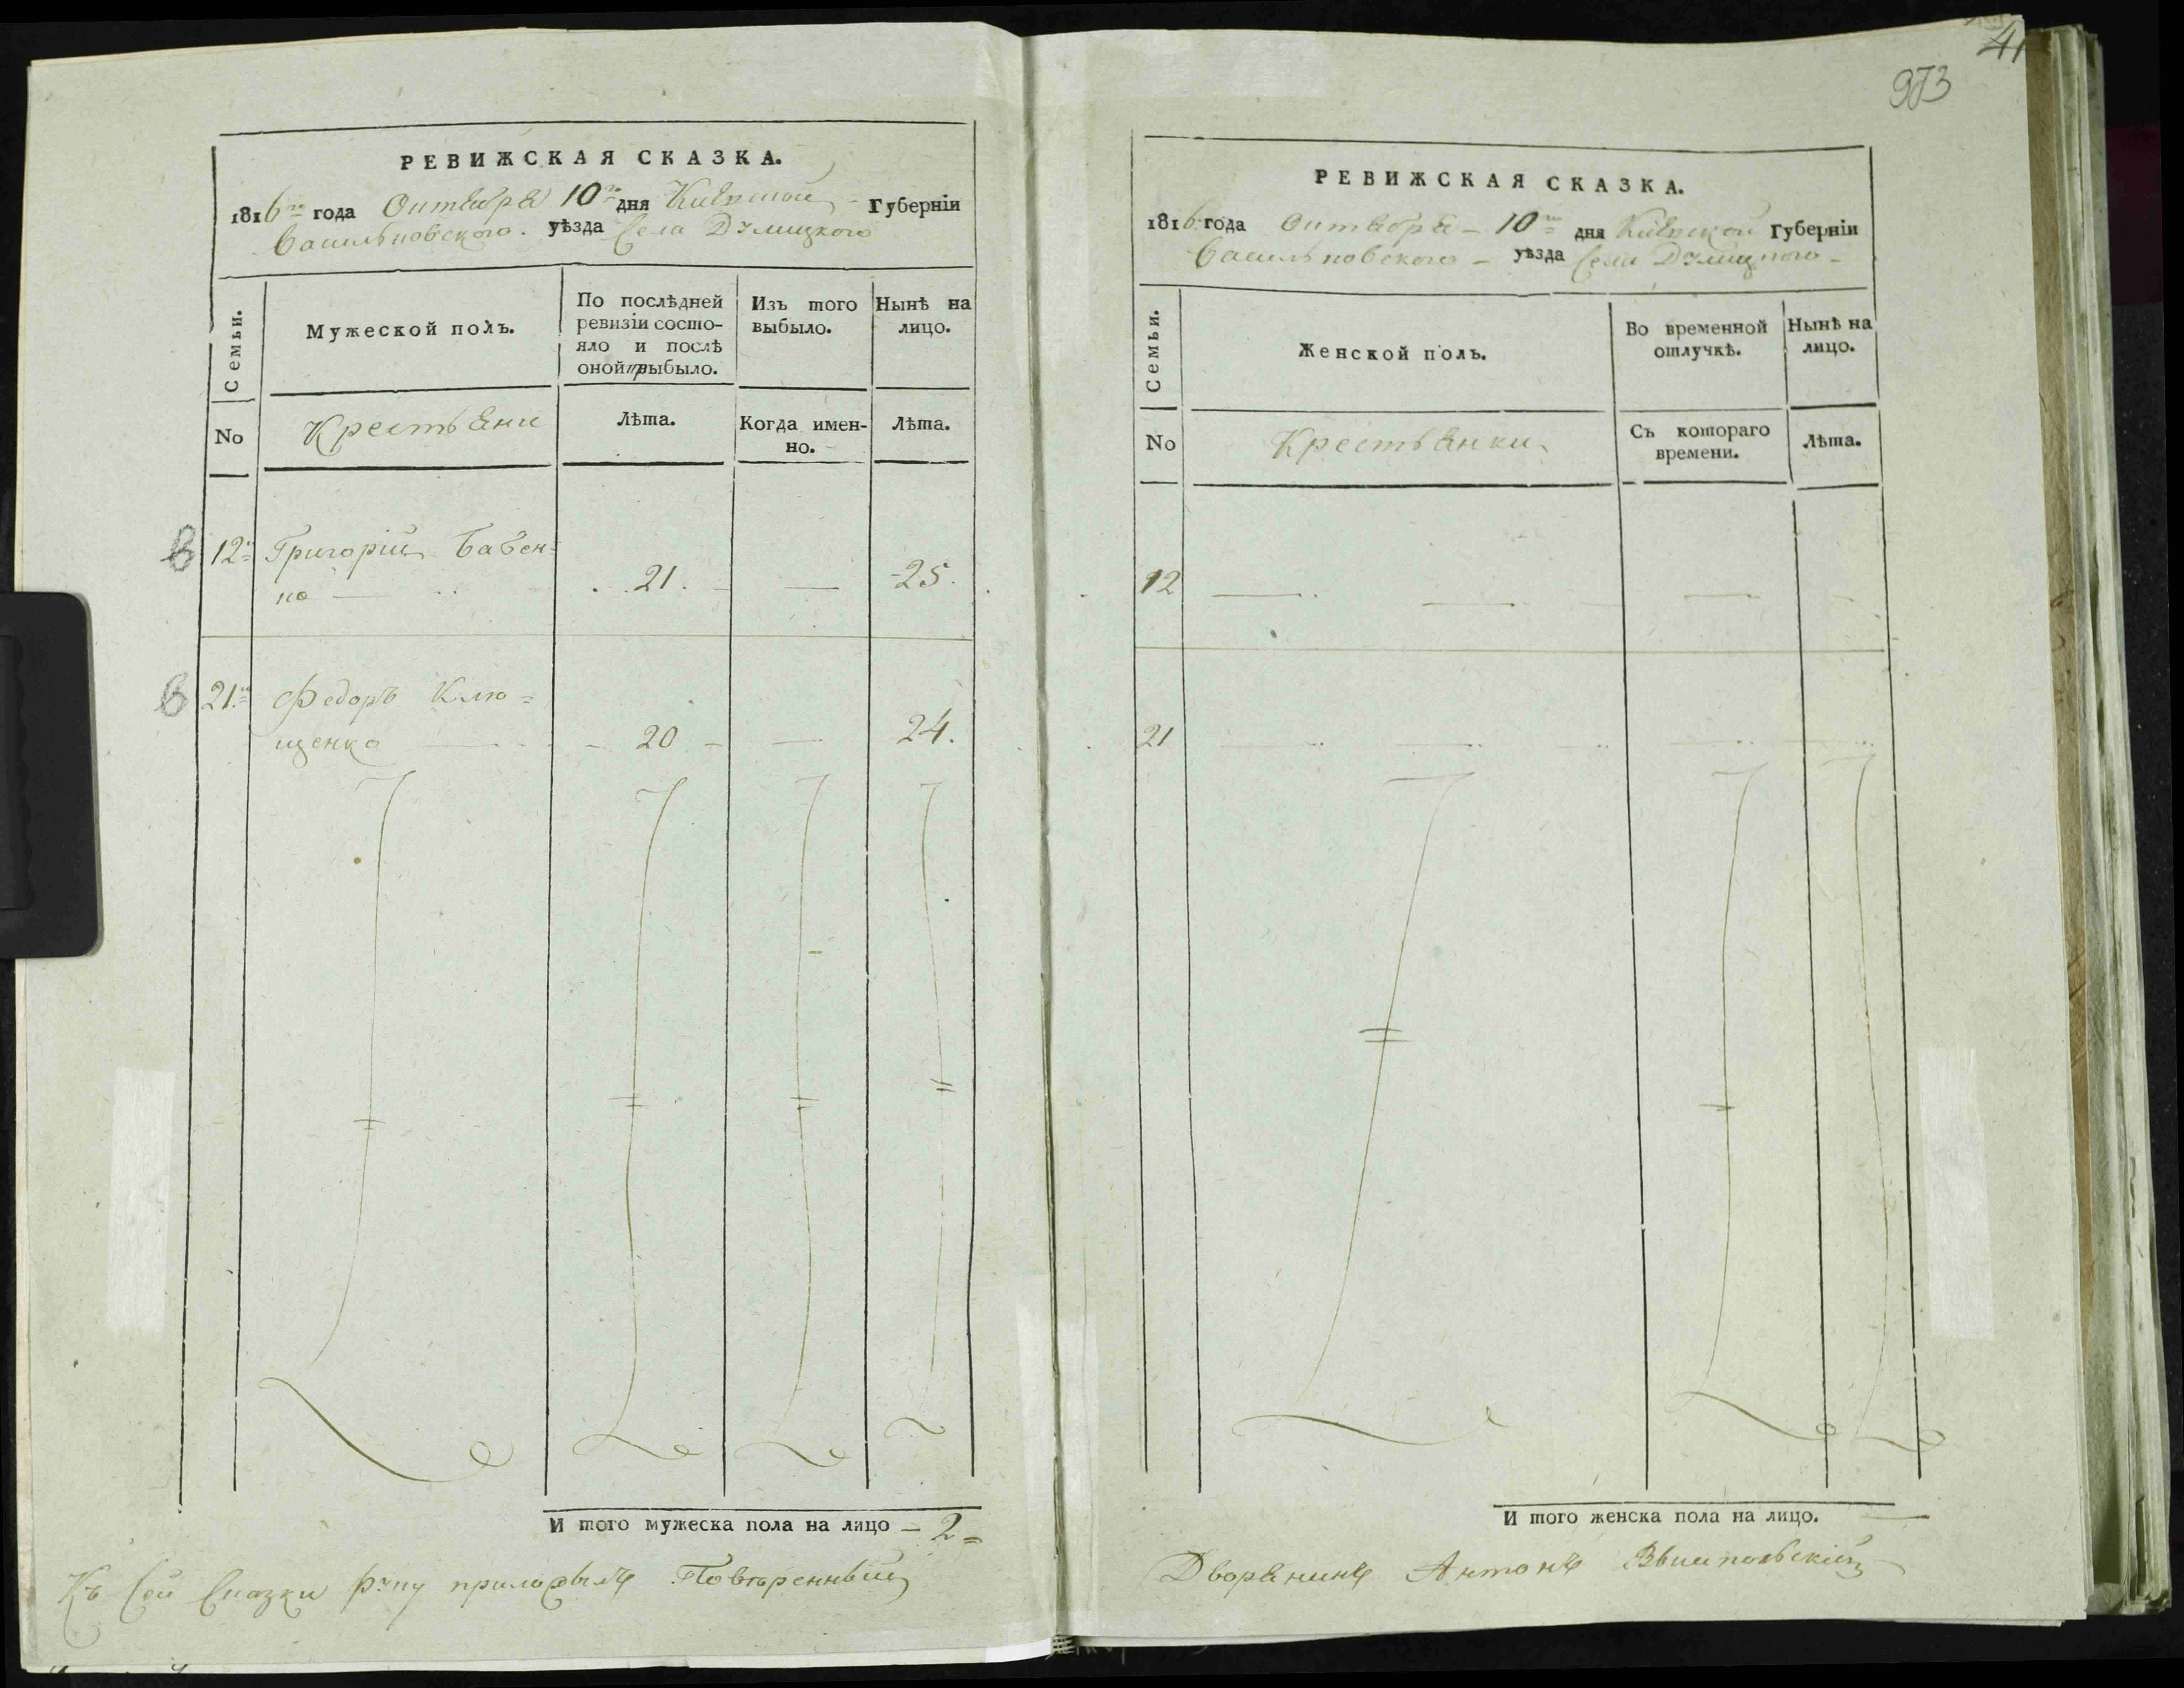 41
973
РЕВИЖСКАЯ СКАЗКА.
1816го года Октября 10го дня Кіевской Губерніи
Васильковского уѣзда Села Дулицкого
Семьи.
Мужеской полъ.
По послѣдней ревизіи состо-
яло и послѣ
оной прибыло.
Изъ того выбыло.
Нынѣ на лицо.
No
Крестьяне
Лѣта.
Когда имен-
но.
Лѣта.
12 Григорій
ко 21. — 25.
21 Федоръ Клю=
щенко 20 — 24.
И того мужеска пола на лицо — 2=
Къ сей Сказки руку приложылъ Повѣренный
РЕВИЖСКАЯ СКАЗКА.
1816 года Октября 10го дня Кіевской Губерніи
Васильковского уѣзда Села Дулицкого
Семьи.
Женской полъ.
Во временной отлучкѣ.
Нынѣ на лицо.
No
Крестьянки
Съ котораго времени.
Лѣта.
12 — — —
21 — — — —
И того женска пола на лицо. —
Дворянинъ Антонъ